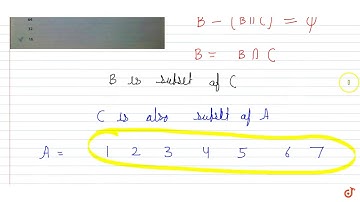 64
32
16
B - (B∩C) = ψ
B = B∩C
B is subset of C
C is also subset of A
A = 1 2 3 4 5 6 7